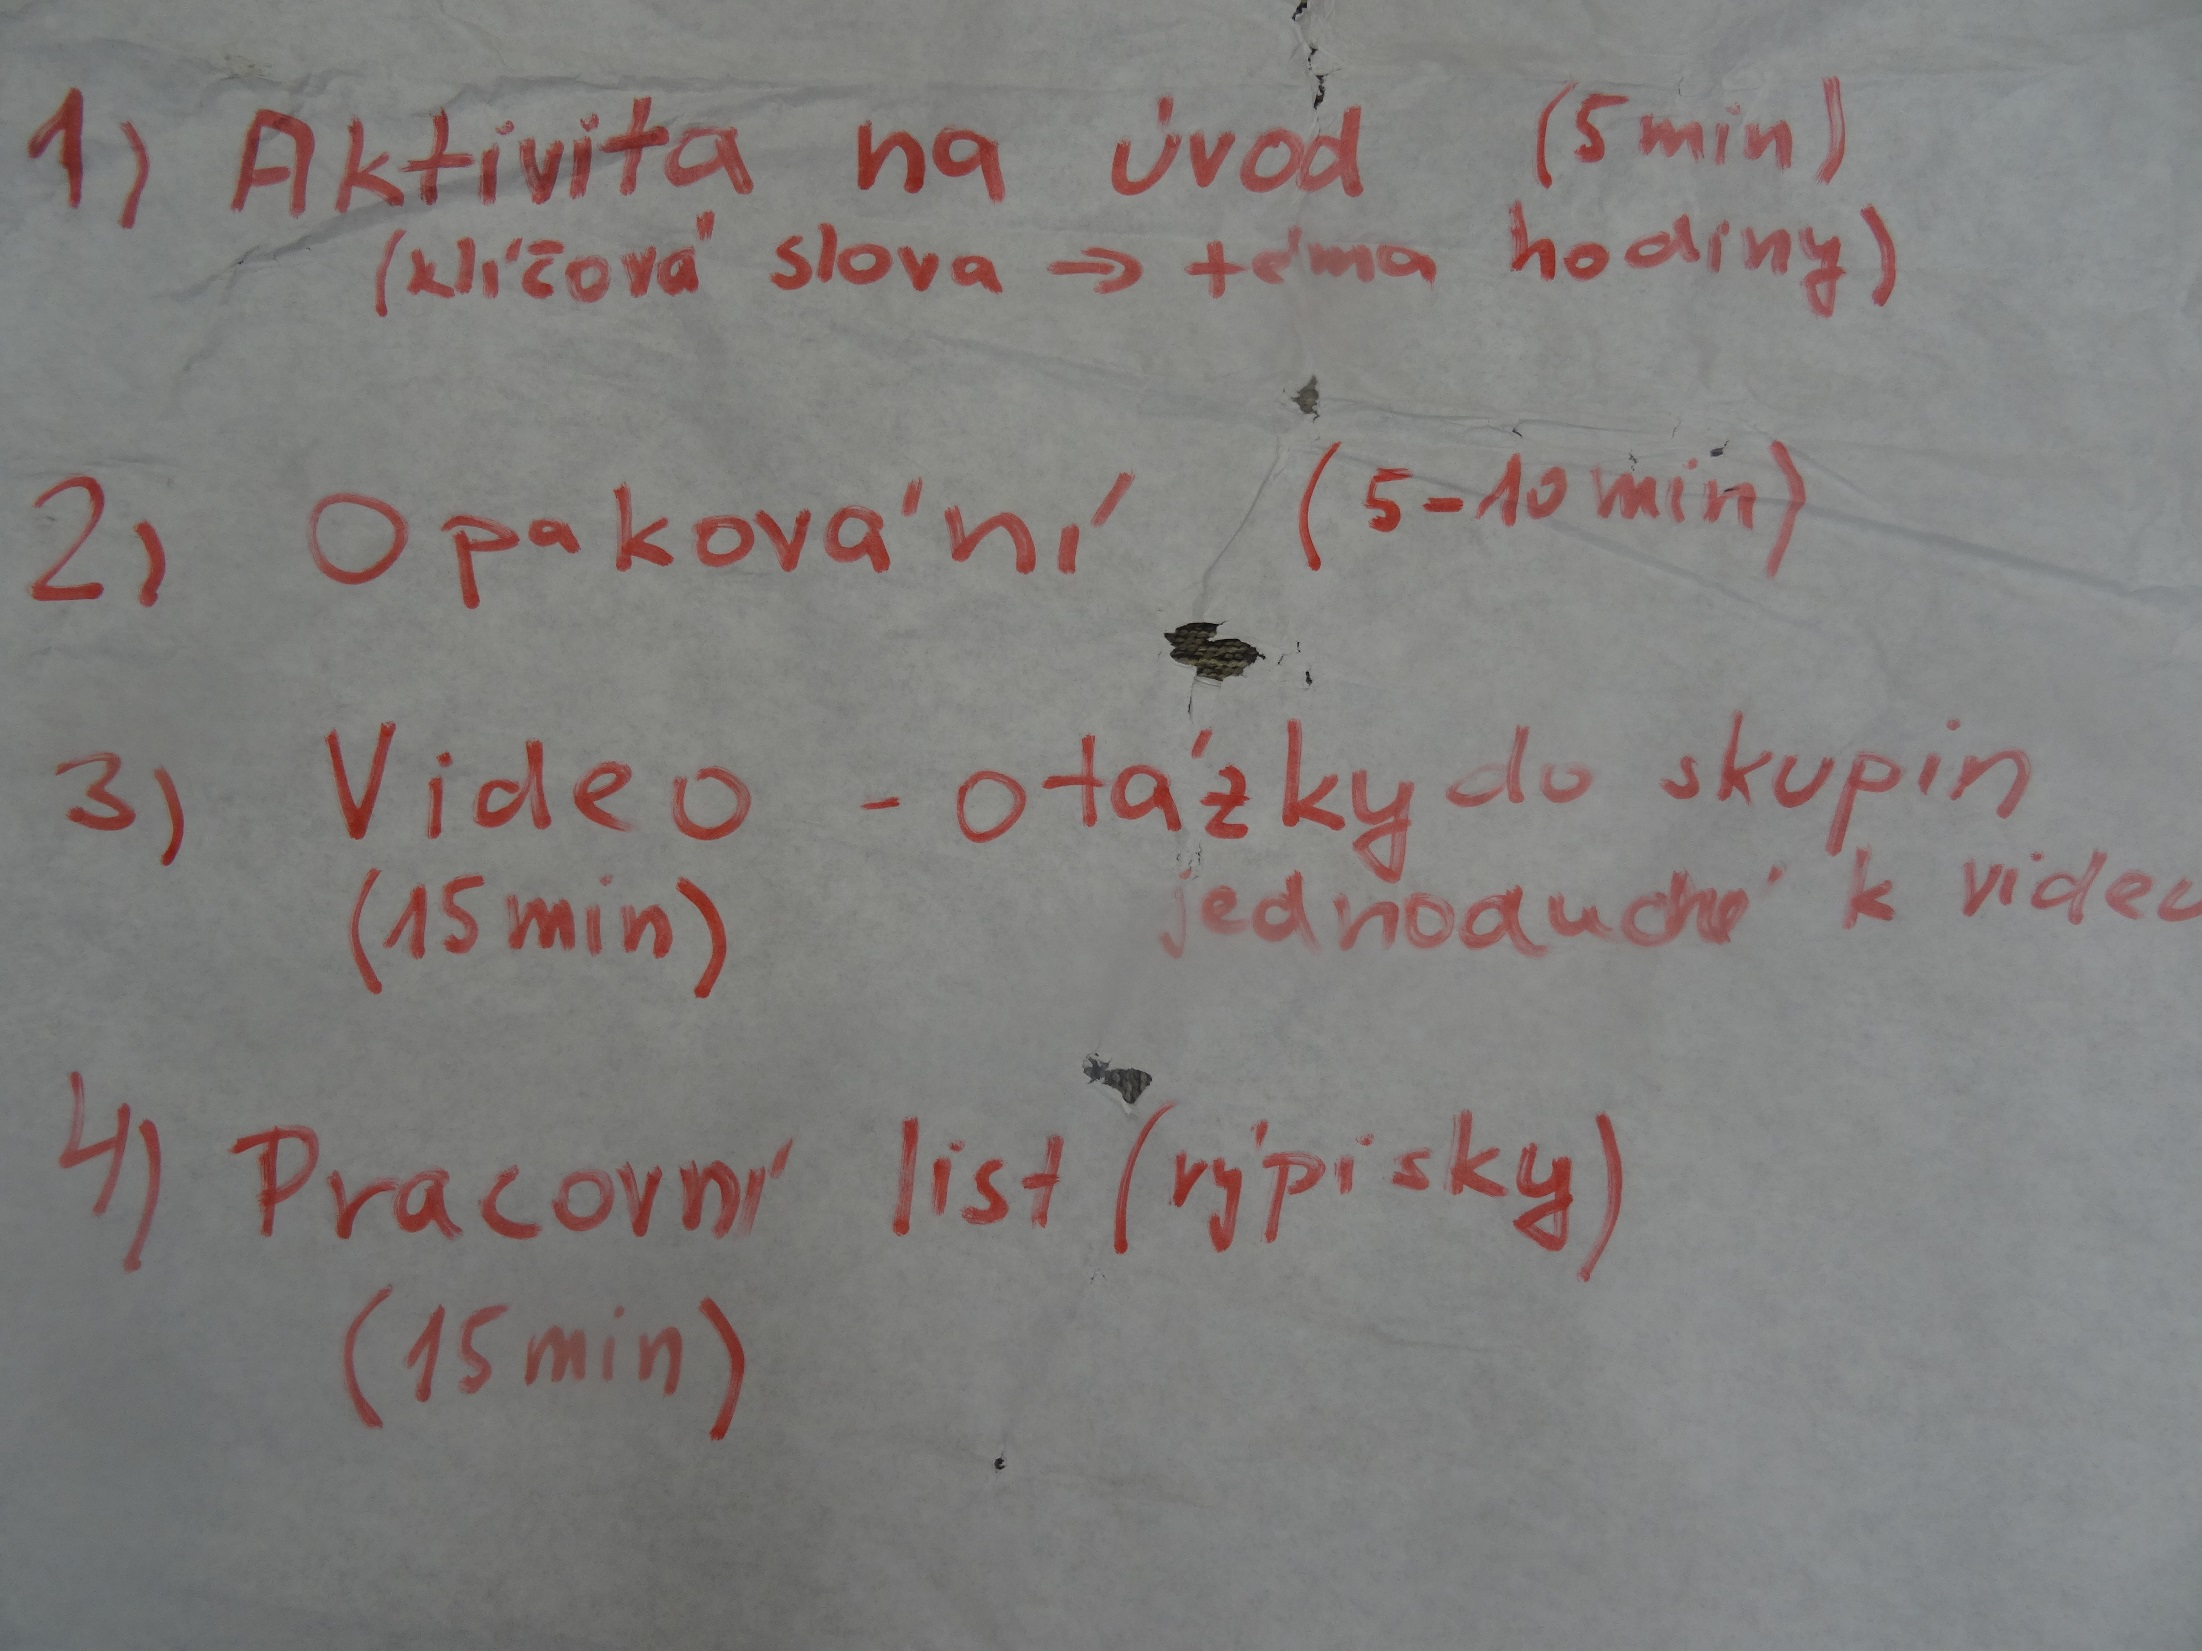 1) Aktivita na úvod (5 min)
(klíčová slova → téma hodiny)
2) Opakování (5-10 min)
3) Video - otázky do skupin
(15 min) jednoduché k videu
4) Pracovní list (výpisky)
(15 min)